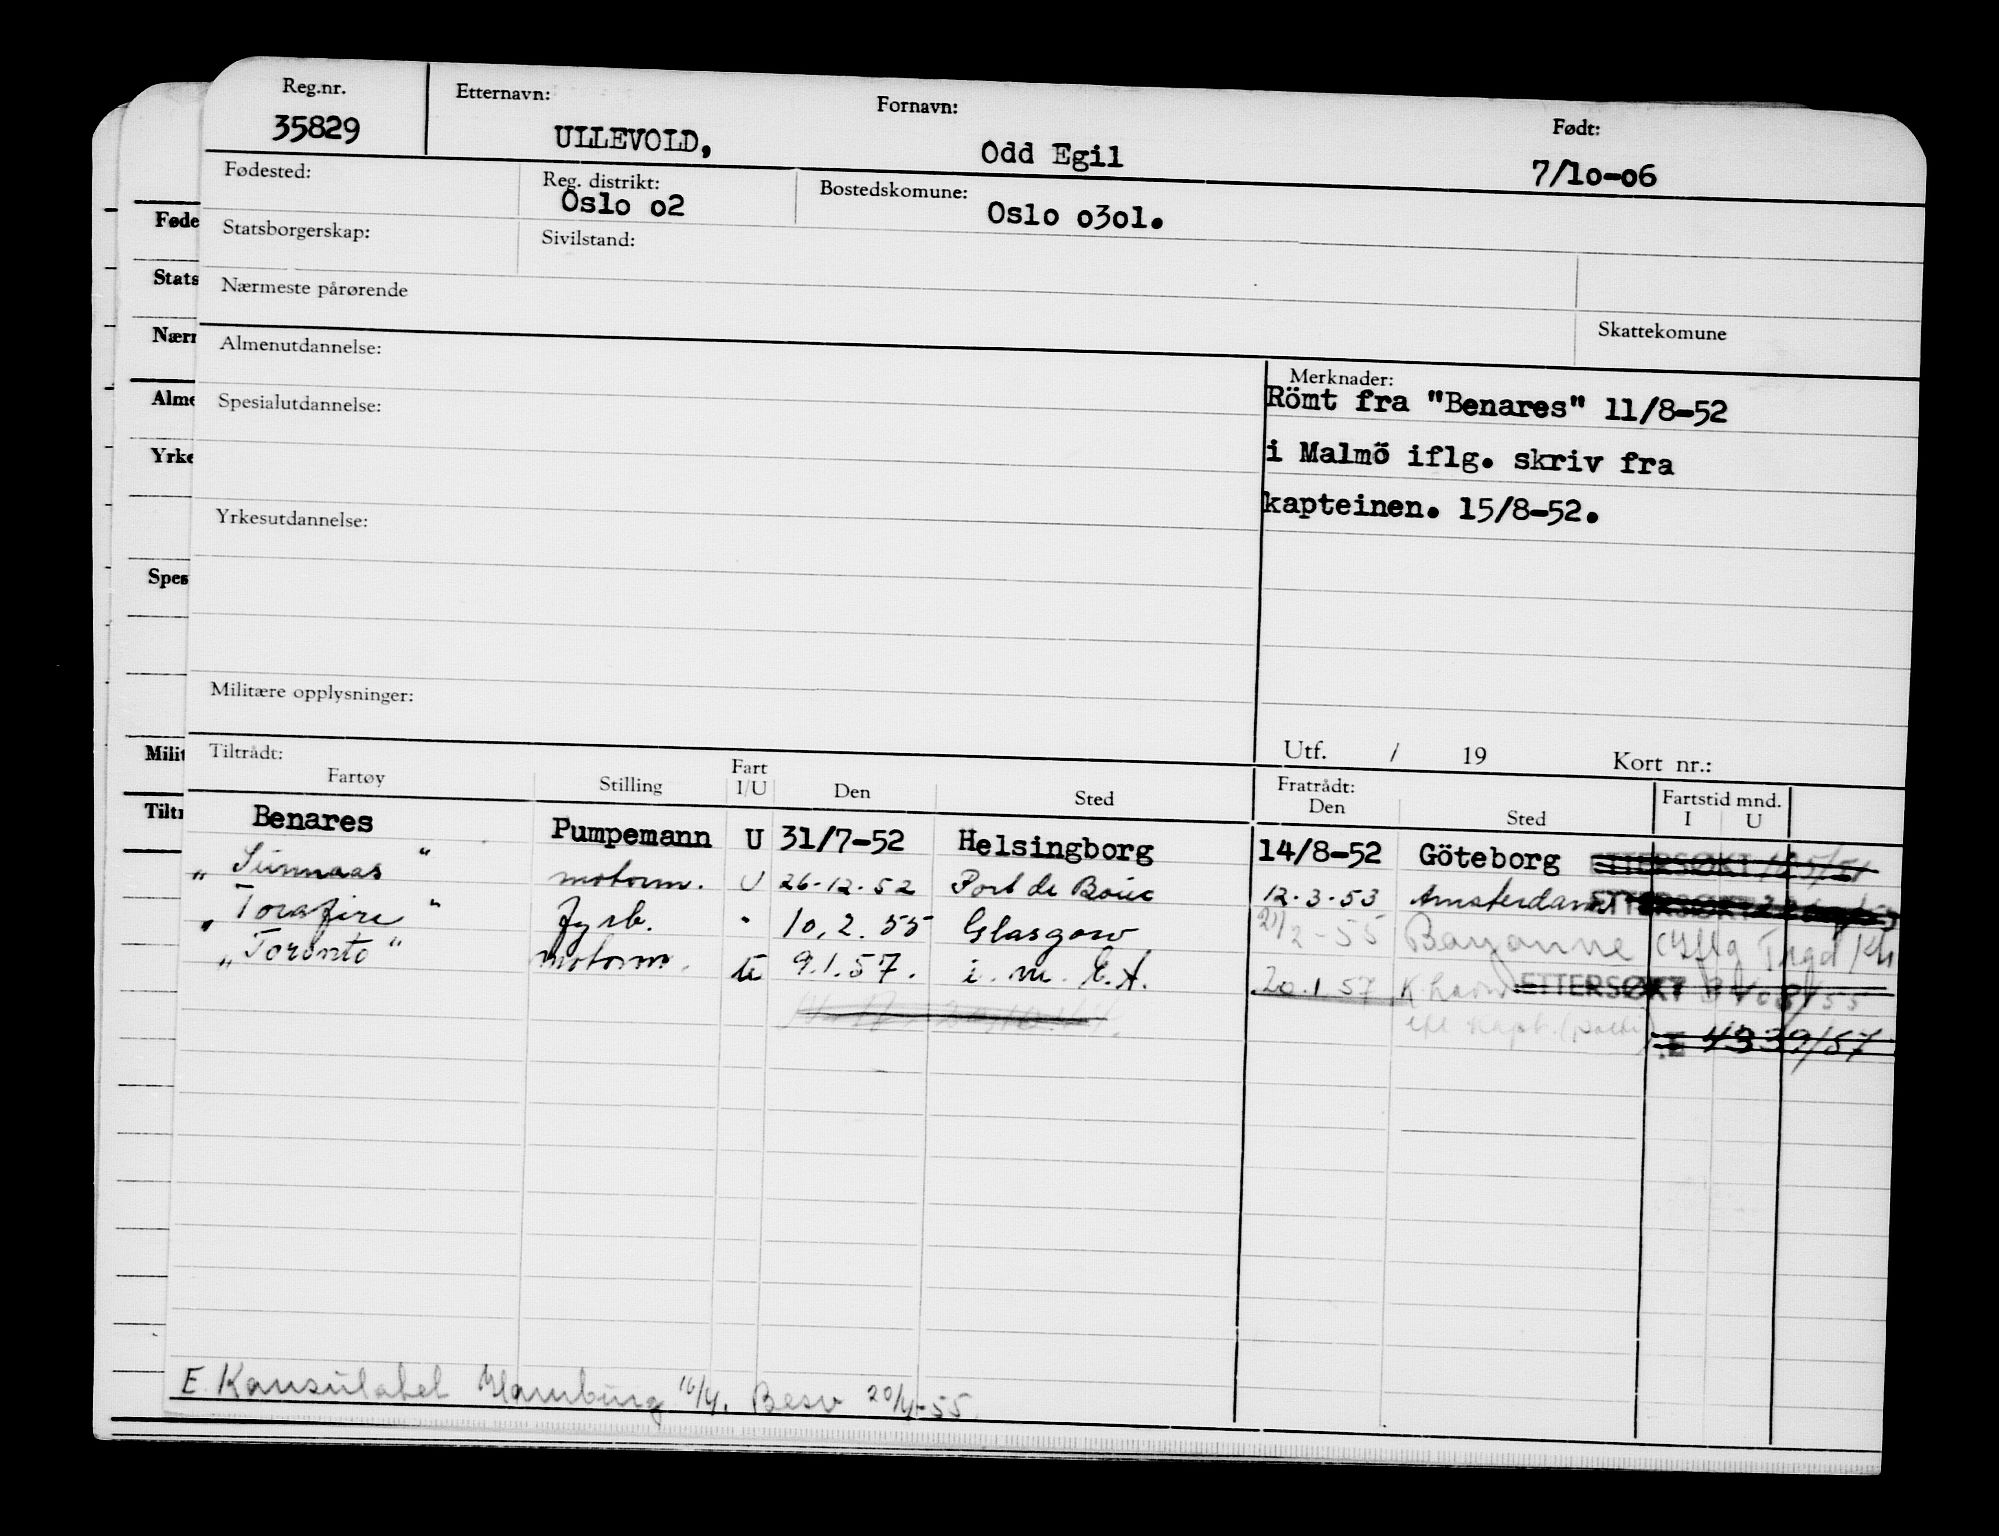 Reg.nr. Etternavn: Fornavn: Født:
35829 ULLEVOLD, Odd Egil 7/1o-o6
Fødested: Reg. distrikt: Bostedskomune:
Oslo o2 Oslo o3o1.
Statsborgerskap: Sivilstand:
Nærmeste pårørende
Skattekomune
Almenutdannelse:
Merknader:
Römt fra "Benares" 11/8-52
i Malmö iflg. skriv fra
kapteinen. 15/8-52.
Spesialutdannelse:
Yrkesutdannelse:
Militære opplysninger:
Utf. / 19 Kort nr.:
Tiltrådt: Fratrådt: Fartstid mnd.
Fartøy Stilling Fart I/U Den Sted Den Sted I U
Benares Pumpemann U 31/7-52 Helsingborg 14/8-52 Göteborg ETTERSØKT
"Sunnaas" motorm. U 26-12-52 Port de Bouc 12-3-53 Amsterdam ETTERSØKT
"Torafire" fyrb. " 10.2.55 Glasgow 21/2-55 Bayonne
"Toronto" motorm. u 9.1.57. i.m. E.A. 20.1.57 ETTERSØKT
E 4339/57
E. Konsulatet Hamburg 16/4. Besv 20/4-55
Føde
Stats
Nærr
Alme
Yrke
Spes
Milit
Tiltr